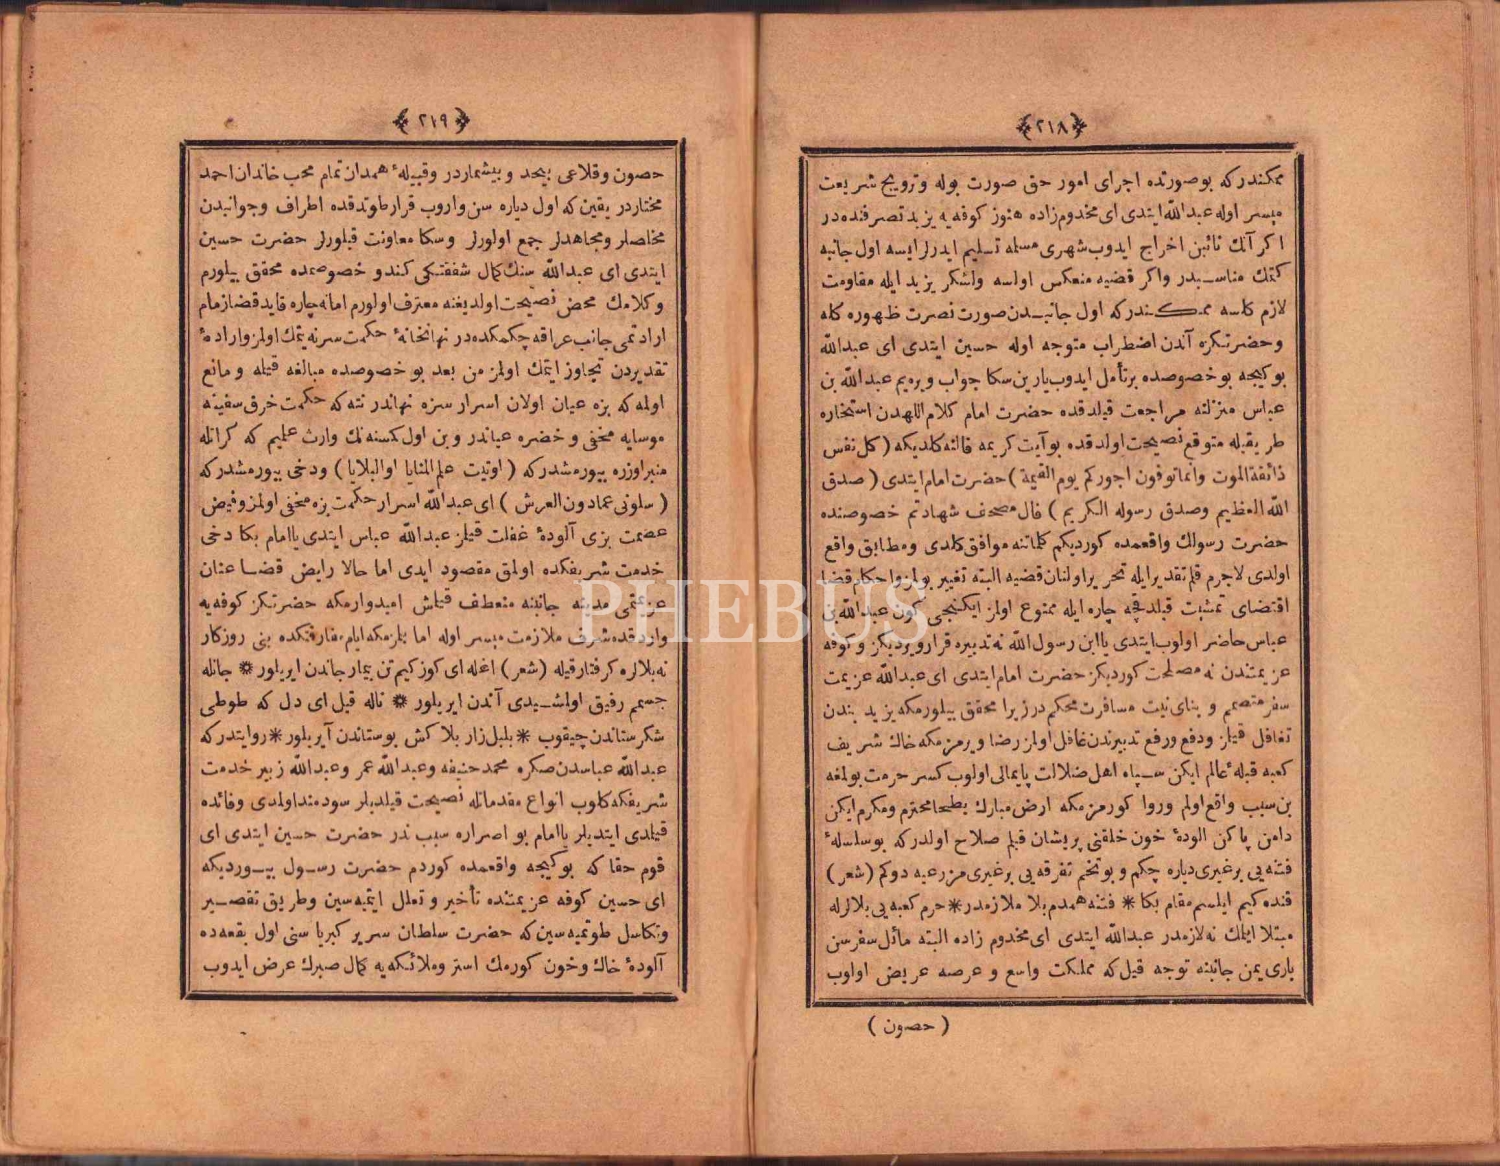 ﴿٢١٨﴾
ممكندركه بو صورتده اجراى امور حق صورت بوله و ترويج شريعت
ميسر اوله عبدالله ايتدى اى مخدوم زاده هنوز كوفه يه يزيد تصرفنده در
اكر آنك نائبن اخراج ايدوب شهرى مسلمه تسليم ايدرلر ايسه اول جانبه
كتمك مناسبدر واكر قضيه منعكس اولسه ولشكر يزيد ايله مقاومت
لازم كلسه ممكندركه اول جانبدن صورت نصرت ظهوره كله
وحضرتكزه آندن اضطراب متوجه اوله حسين ايتدى اى عبدالله
بو كيجه بو خصوصده بر تأمل ايدوب يارين سكا جواب ويره يم عبدالله بن
عباس منزلنه مراجعت قيلدقده حضرت امام كلام اللهدن استخاره
طريقيله متوقع نصيحت اولدقده بو آيت كريمه فالنه كلديكه (كل نفس
ذائقة الموت وانما توفون اجوركم يوم القيمة) حضرت امام ايتدى (صدق
الله العظيم وصدق رسوله الكريم) فال مصحف شهادتم خصوصنده
حضرت رسولك واقعمده كورديكم كلماتنه موافق كلدى ومطابق واقع
اولدى لاجرم قلم تقدير ايله تحرير اولنان قضيه البته تغيير بولمز واحكام قضا
اقتضاى تمشيت قيلدقچه چاره ايله ممنوع اولمز ايكنجى كون عبدالله بن
عباس حاضر اولوب ايتدى يا ابن رسول الله نه تدبيره قرار ويرديكز وكوفه
عزيمتندن نه مصلحت كورديكز حضرت امام ايتدى اى عبدالله عزيمت
سفر متصمم و بناى نيت مسافرت محكم در زيرا محقق بيلورمكه يزيد بندن
تغافل قيلمز ودفع ورفع تدبيرندن غافل اولمز رضا ويرمزمكه خاك شريف
كعبه قبلهٔ عالم ايكن سپاه اهل ضلالت پايمالى اولوب كسر حرمت بولمغه
بن سبب واقع اولم وروا كورمزمكه ارض مبارك بطحا محترم ومكرم ايكن
دامن پاكن الودهٔ خون خلقنى پريشان قيلم صلاح اولدركه بو سلسلهٔ
فتنه يى بر غيرى دياره چكم و بو تخم تفرقه يى بر غيرى مزرعه يه دوكم (شعر)
قنده كيم ايلسم مقام بكا * فتنه همدم بلا ملازمدر * حرم كعبه يى بلالرله
مبتلا ايلمك نه لازمدر عبدالله ايتدى اى مخدوم زاده البته مائل سفرسن
بارى يمن جانبنه توجه قيل كه مملكت واسع و عرصه عريض اولوب
(حصون)
﴿٢١٩﴾
حصون وقلاعى بيحد و بيشماردر وقبيلهٔ همدان تمام محب خاندان احمد
مختاردر يقين كه اول دياره سن واروب قرار طوتدقده اطراف وجوانبدن
مخلصلر ومجاهدلر جمع اولورلر وسكا معاونت قيلورلر حضرت حسين
ايتدى اى عبدالله سنك كمال شفقتكى كندو خصوصمده محقق بيلورم
وكلامك محض نصيحت اولديغنه معترف اولورم اما نه چاره قايد قضا زمام
ارادتمى جانب عراقه چكمكده در نهانخانهٔ حكمت سرنه يتمك اولمز وارادهٔ
تقديردن تجاوز ايتمك اولمز من بعد بو خصوصده مبالغه قيلمه و مانع
اولمه كه بزه عيان اولان اسرار سزه نهاندر نته كه حكمت خرق سفينه
موسايه مخفى و خضره عياندر و بن اول كسنه نك وارث علميم كه كراتله
منبر اوزره بيورمشدركه (اوتيت علم المنايا اوالبلايا) ودخى بيورمشدركه
(سلونى عمادون العرش) اى عبدالله اسرار حكمت بزه مخفى اولمز وفيض
عصمت بزى آلودهٔ غفلت قيلمز عبدالله عباس ايتدى يا امام بكا دخى
خدمت شريفكده اولمق مقصود ايدى اما حالا رايض قضا عنان
عزيمتمى مدينه جانبنه منعطف قيلمش اميدوارمكه حضرتكز كوفه يه
واردقده شرف ملازمت ميسر اوله اما بلزمكه ايام مفارقتكده بنى روزكار
نه بلالره كرفتار قيله (شعر) اغله اى كوز كيم تن بيمار جاندن ايريلور * جانله
جسمم رفيق اولمشيدى آندن ايريلور * ناله قيل اى دل كه طوطى
شكرستاندن چيقوب * بلبل زار بلاكش بوستاندن آيريلور * روايتدركه
عبدالله عباسدن صكره محمد حنيفه وعبدالله عمر وعبدالله زبير خدمت
شريفكه كلوب انواع مقدماتله نصيحت قيلديلر سودمند اولمدى وفائده
قيلمدى ايتديلر يا امام بو اصراره سبب ندر حضرت حسين ايتدى اى
قوم حقا كه بو كيجه واقعمده كوردم حضرت رسول بيورديكه
اى حسين كوفه عزيمتنده تأخير و تعلل ايتميه سين وطريق تقصير
وتكاسل طوتميه سين كه حضرت سلطان سرير كبريا سنى اول بقعه ده
آلودهٔ خاك وخون كورمك استر وملائكه يه كمال صبرك عرض ايدوب
PHEBUS